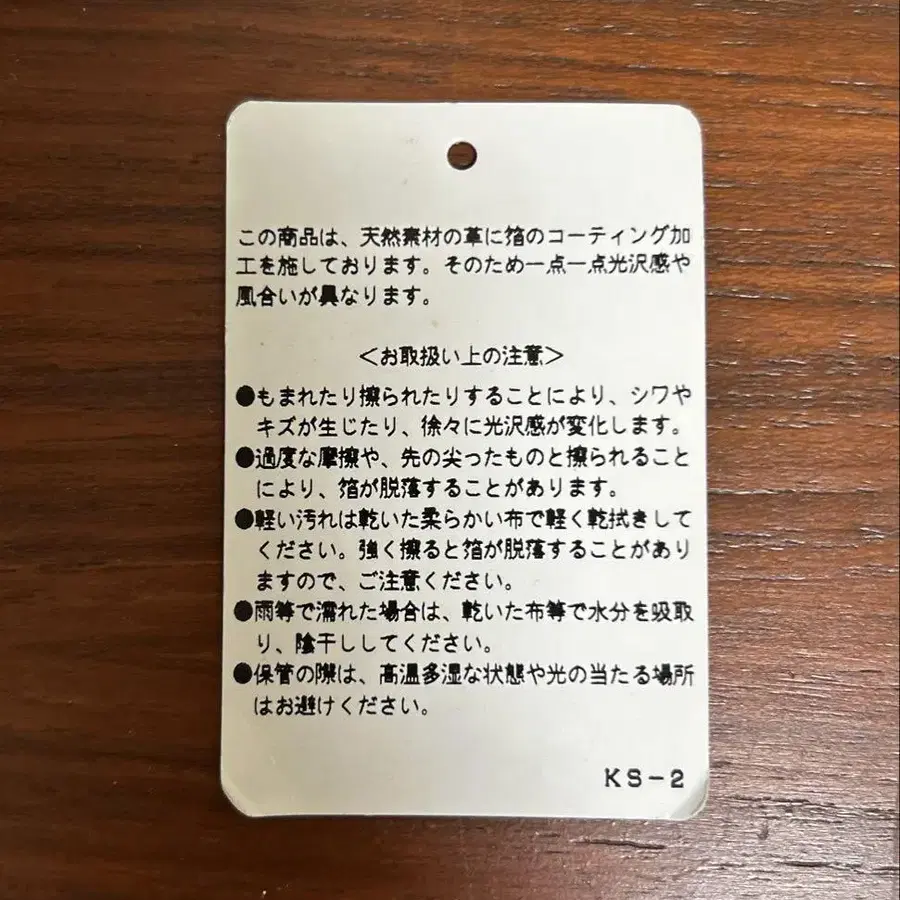 この商品は、天然素材の革に箔のコーティング加
工を施しております。そのため一点一点光沢感や
風合いが異なります。
＜お取扱い上の注意＞
●もまれたり擦られたりすることにより、シワや
キズが生じたり、徐々に光沢感が変化します。
●過度な摩擦や、先の尖ったものと擦られること
により、箔が脱落することがあります。
●軽い汚れは乾いた柔らかい布で軽く乾拭きして
ください。強く擦ると箔が脱落することがあり
ますので、ご注意ください。
●雨等で濡れた場合は、乾いた布等で水分を吸取
り、陰干ししてください。
●保管の際は、高温多湿な状態や光の当たる場所
はお避けください。
KS-2